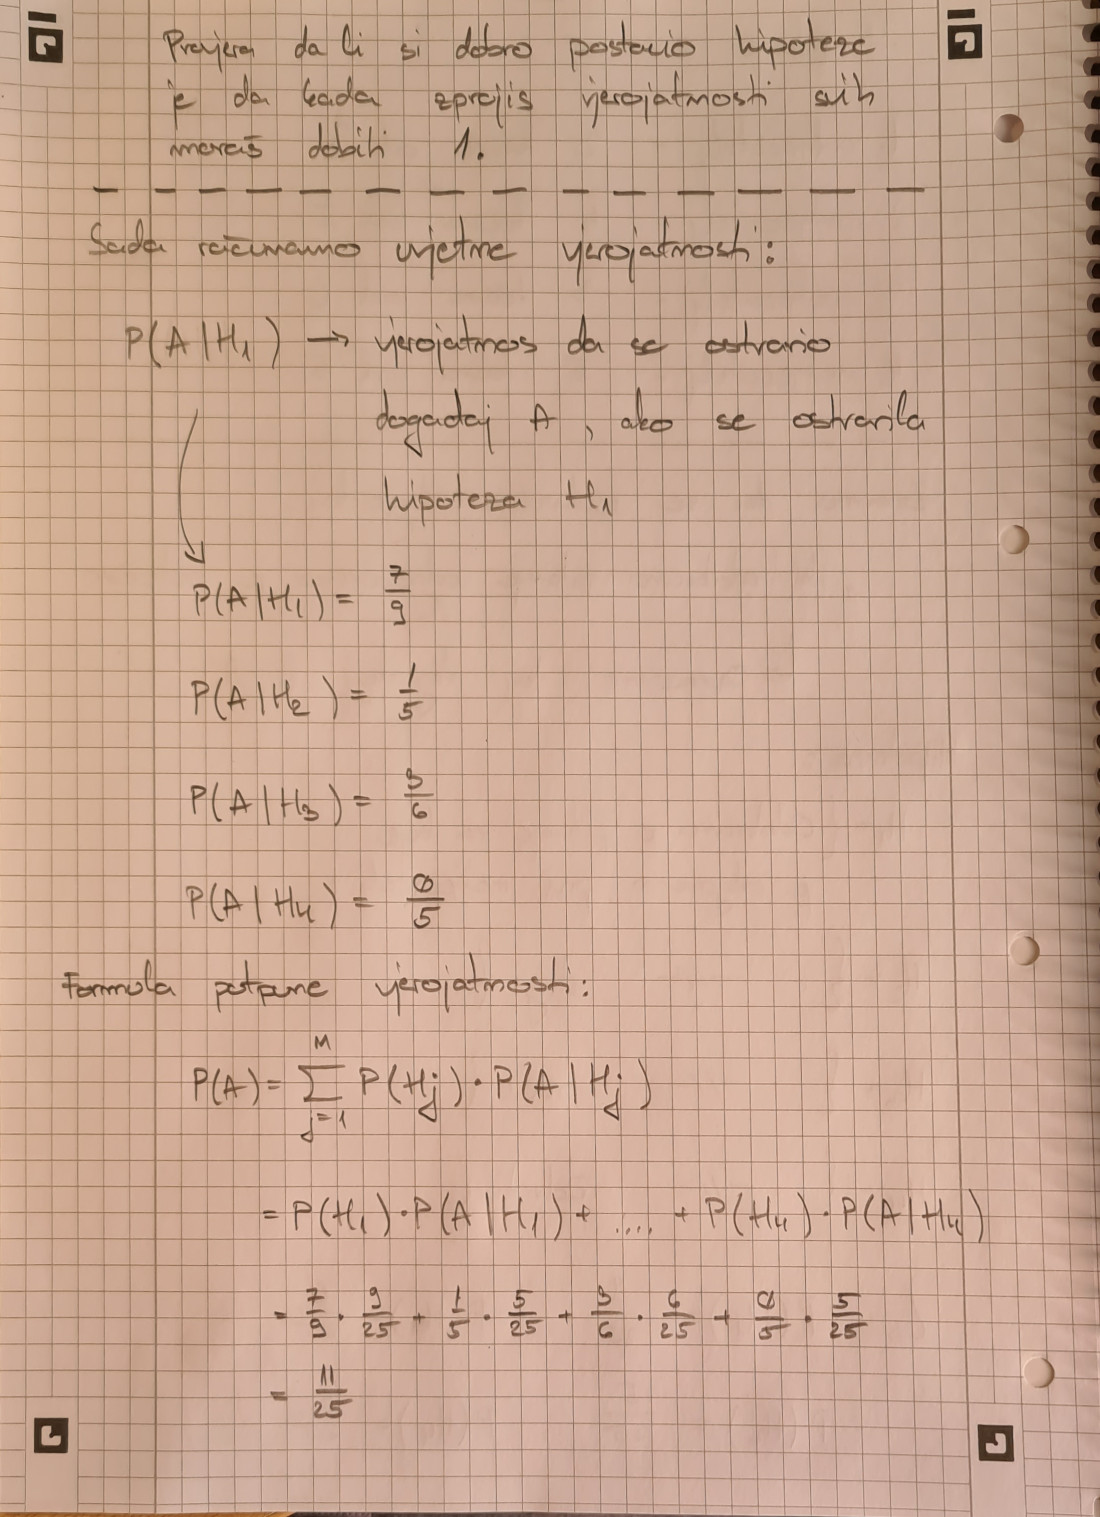 Provjera da li si dobro postavio hipoteze
je da kada zbrojis vjerojatnosti svih
moraš dobiti 1.
Sada računamo uvjetne vjerojatnosti:
P(A|H₁) → vjerojatnos da se ostvario
događaj A, ako se ostvarila
hipoteza H₁
P(A|H₁) = 7/9
P(A|H₂) = 1/5
P(A|H₃) = 3/6
P(A|H₄) = 0/5
Formula potpune vjerojatnosti:
P(A) = ∑_{j=1}^{M} P(Hj) · P(A|Hj)
= P(H₁) · P(A|H₁) + .... + P(H₄) · P(A|H₄)
= 7/9 · 9/25 + 1/5 · 5/25 + 3/6 · 6/25 + 0/5 · 5/25
= 11/25